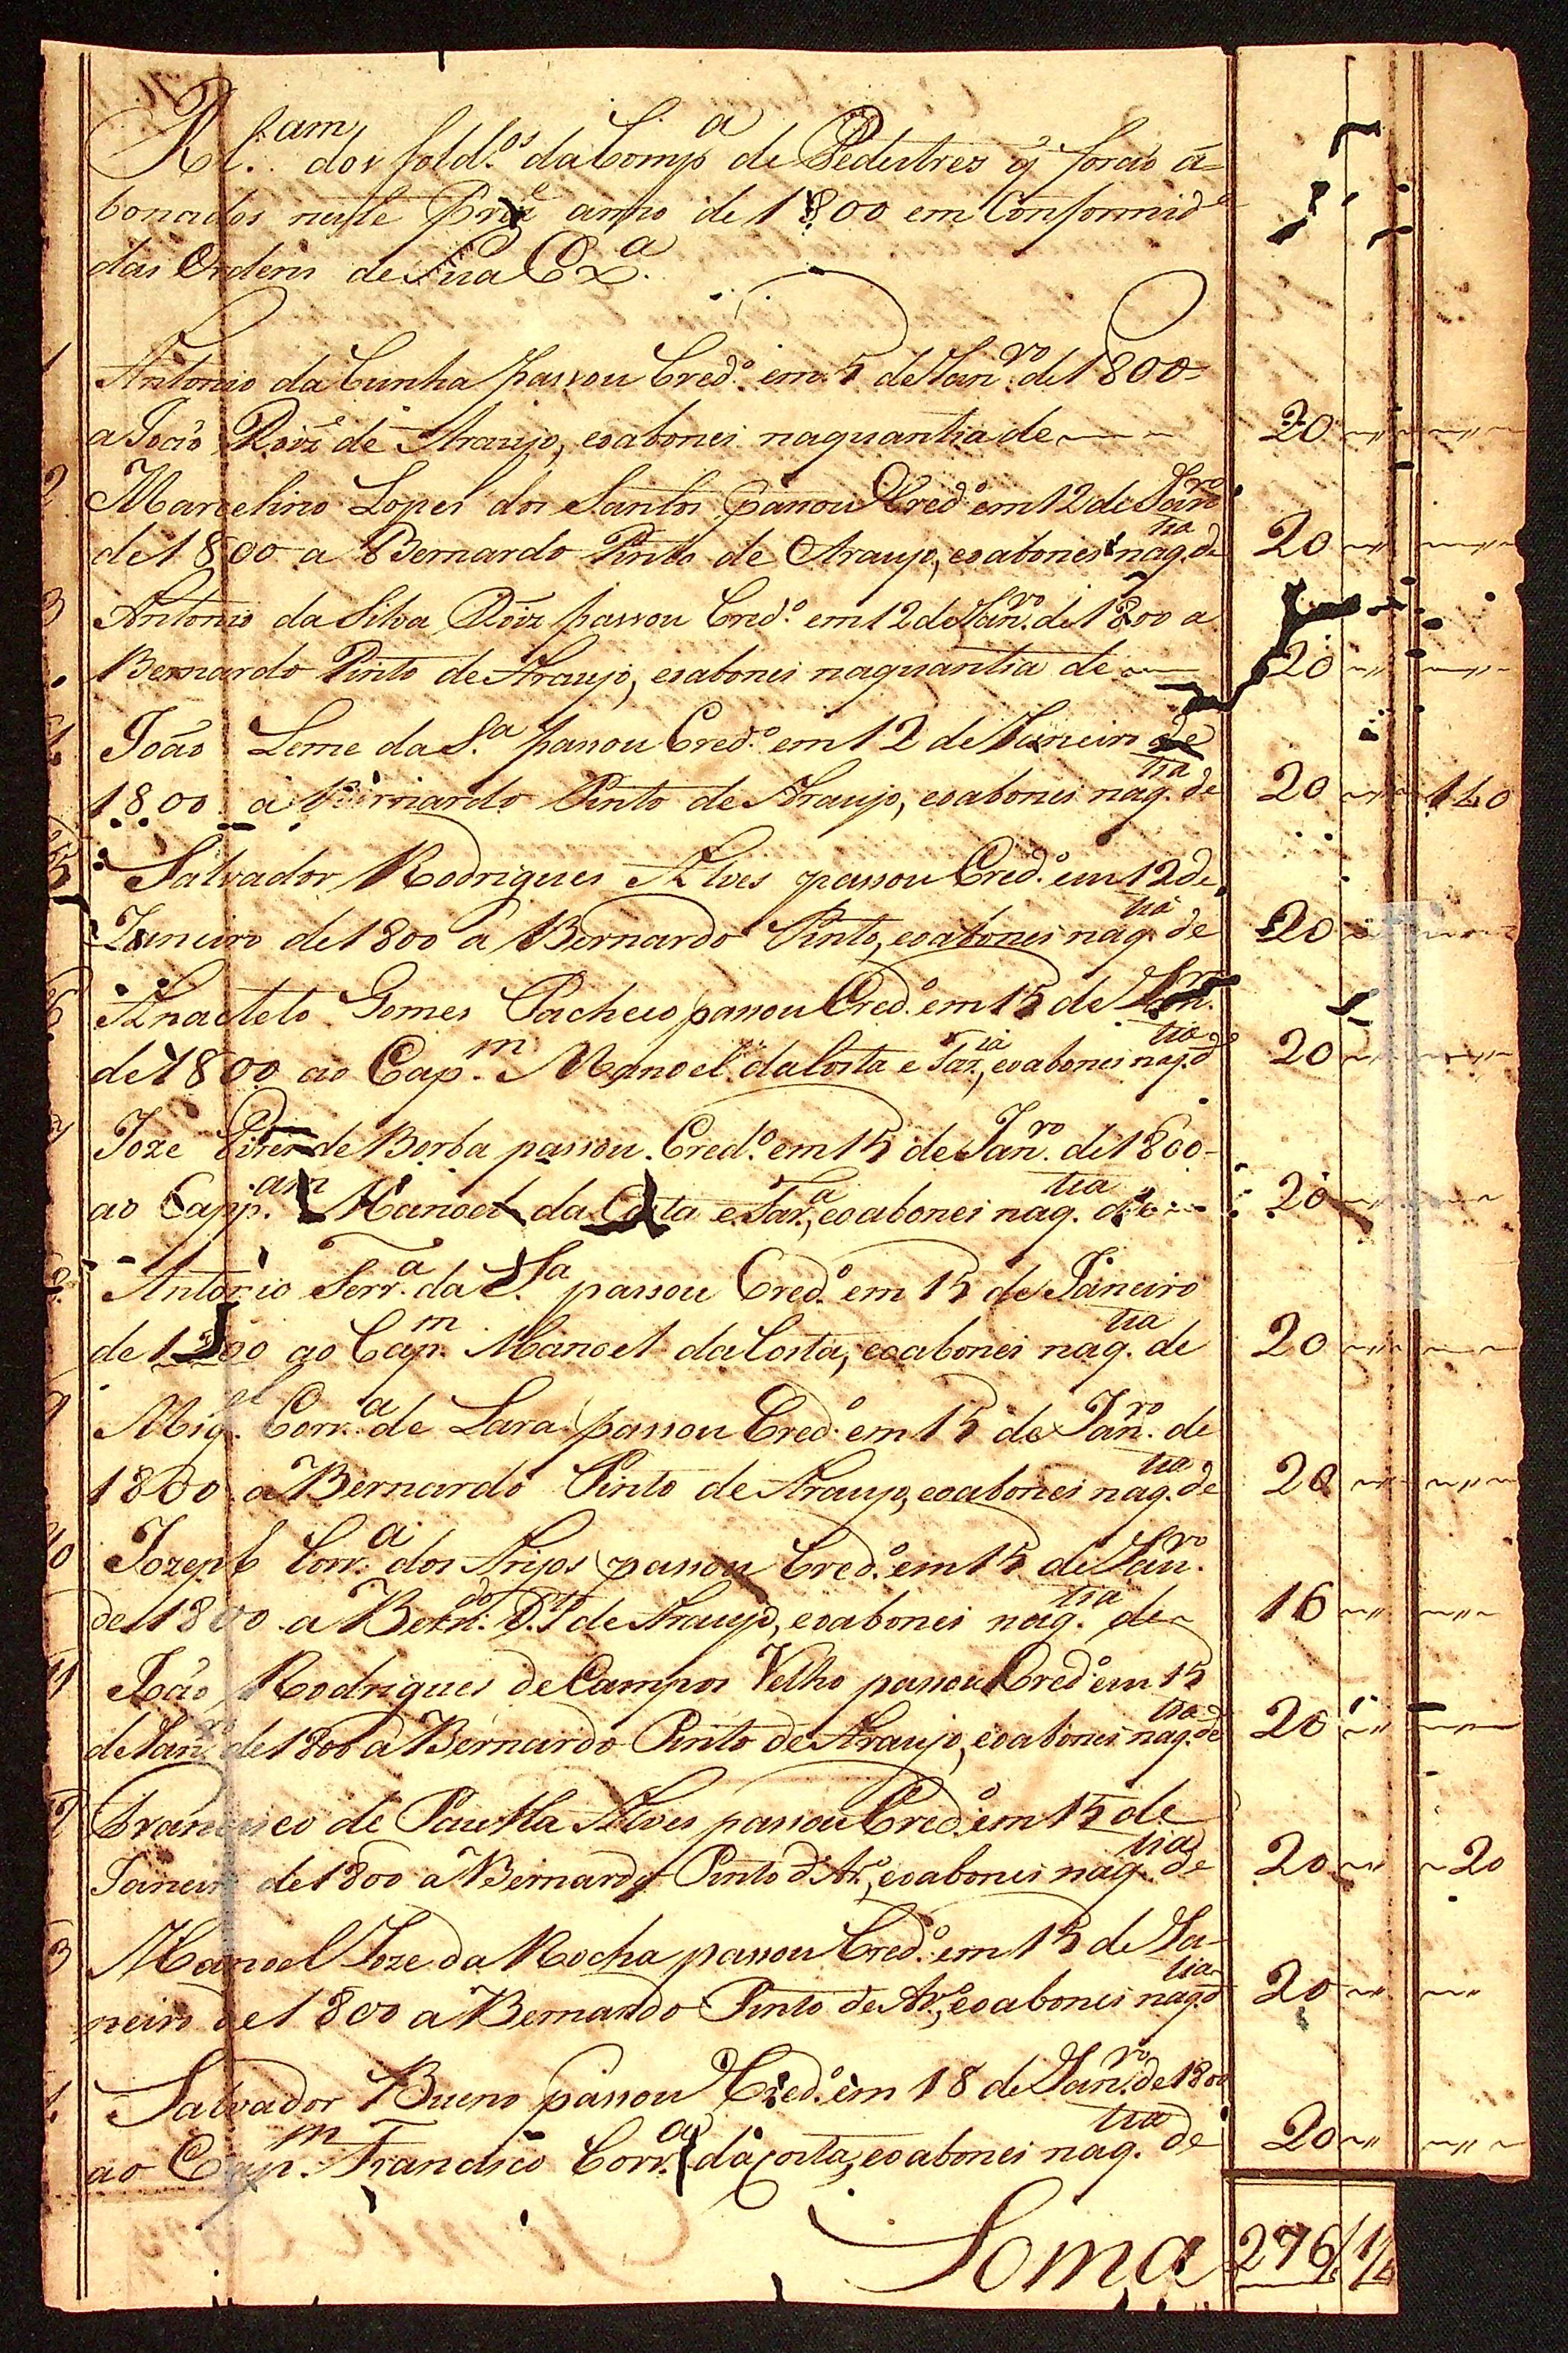 Rel.am dos sold.os da Comp.a de Pedestres q̃ forão a-
bonados neste Prez.e anno de 1800 em Conformid.e
das Ordens de Sua Ex.a
1 Antonio da Cunha passou Cred.o em 5 de Jan.ro de 1800-
a João Roiz' de Araujo, eoabonei naquantia de 20
2 Marcelino Lopes dos Santos passou Cred.o em 12 de Jan.ro
de 1800 a Bernardo Pinto de Araujo, eoabonei naq.tia de 20
3 Antonio da Silva Roiz passou Cred.o em 12 de Jan.ro de 1800 a
Bernardo Pinto de Araujo, eoabonei naquantia de 20
4 João Leme da S.a passou Cred.o em 12 de Janeiro de
1800 a Bernardo Pinto de Araujo, eoabonei naq.tia de 20 140
5 Salvador Rodrigues Alves passou Cred.o em 12 de
Janeiro de 1800 a Bernardo Pinto, eoabonei naq.tia de 20
6 Anacleto Gomes Pacheco passou Cred.o em 15 de Jan.ro
de 1800 ao Cap.m Manoel da Costa e Far.ia, eoabonei naq.tia de 20
7 Joze de Borba passou Cred.o em 15 de Jan.ro de 1800-
ao Capp.am Manoel da Costa e Far.a, eoabonei naq.tia de 20
8 Antonio Ferr.a da S.a passou Cred.o em 15 de Janeiro
de 1800 ao Cap.m Manoel da Costa, eoabonei naq.tia de 20
9 Mig.el Corr.a de Lara passou Cred.o em 15 de Jan.ro de
1800 a Bernardo Pinto de Araujo, eoabonei naq.tia de 20
10 Jozeph Corr.a dos passou Cred.o em 15 de Jan.ro
de 1800 a Bern.do P.to de Araujo, eoabonei naq.tia de 16
11 João Rodrigues de Campos Velho passou Cred.o em 15
de Jan.ro de 1800 a Bernardo Pinto de Araujo, eoabonei naq.tia de 20
12 Francisco de Paulla Alves passou Cred.o em 15 de
Janeiro de 1800 a Bernardo Pinto d'Ar.o, eoabonei naq.tia de 20 20
13 Manoel Joze da Rocha passou Cred.o em 15 de Ja-
neiro de 1800 a Bernardo Pinto de Ar.o, eoabonei naq.tia d 20
Salvador Bueno passou Cred.o em 18 de Jan.ro de 1800
ao Cap.m Francisco Corr.a da Costa, eoabonei naq.tia de 20
Soma 276